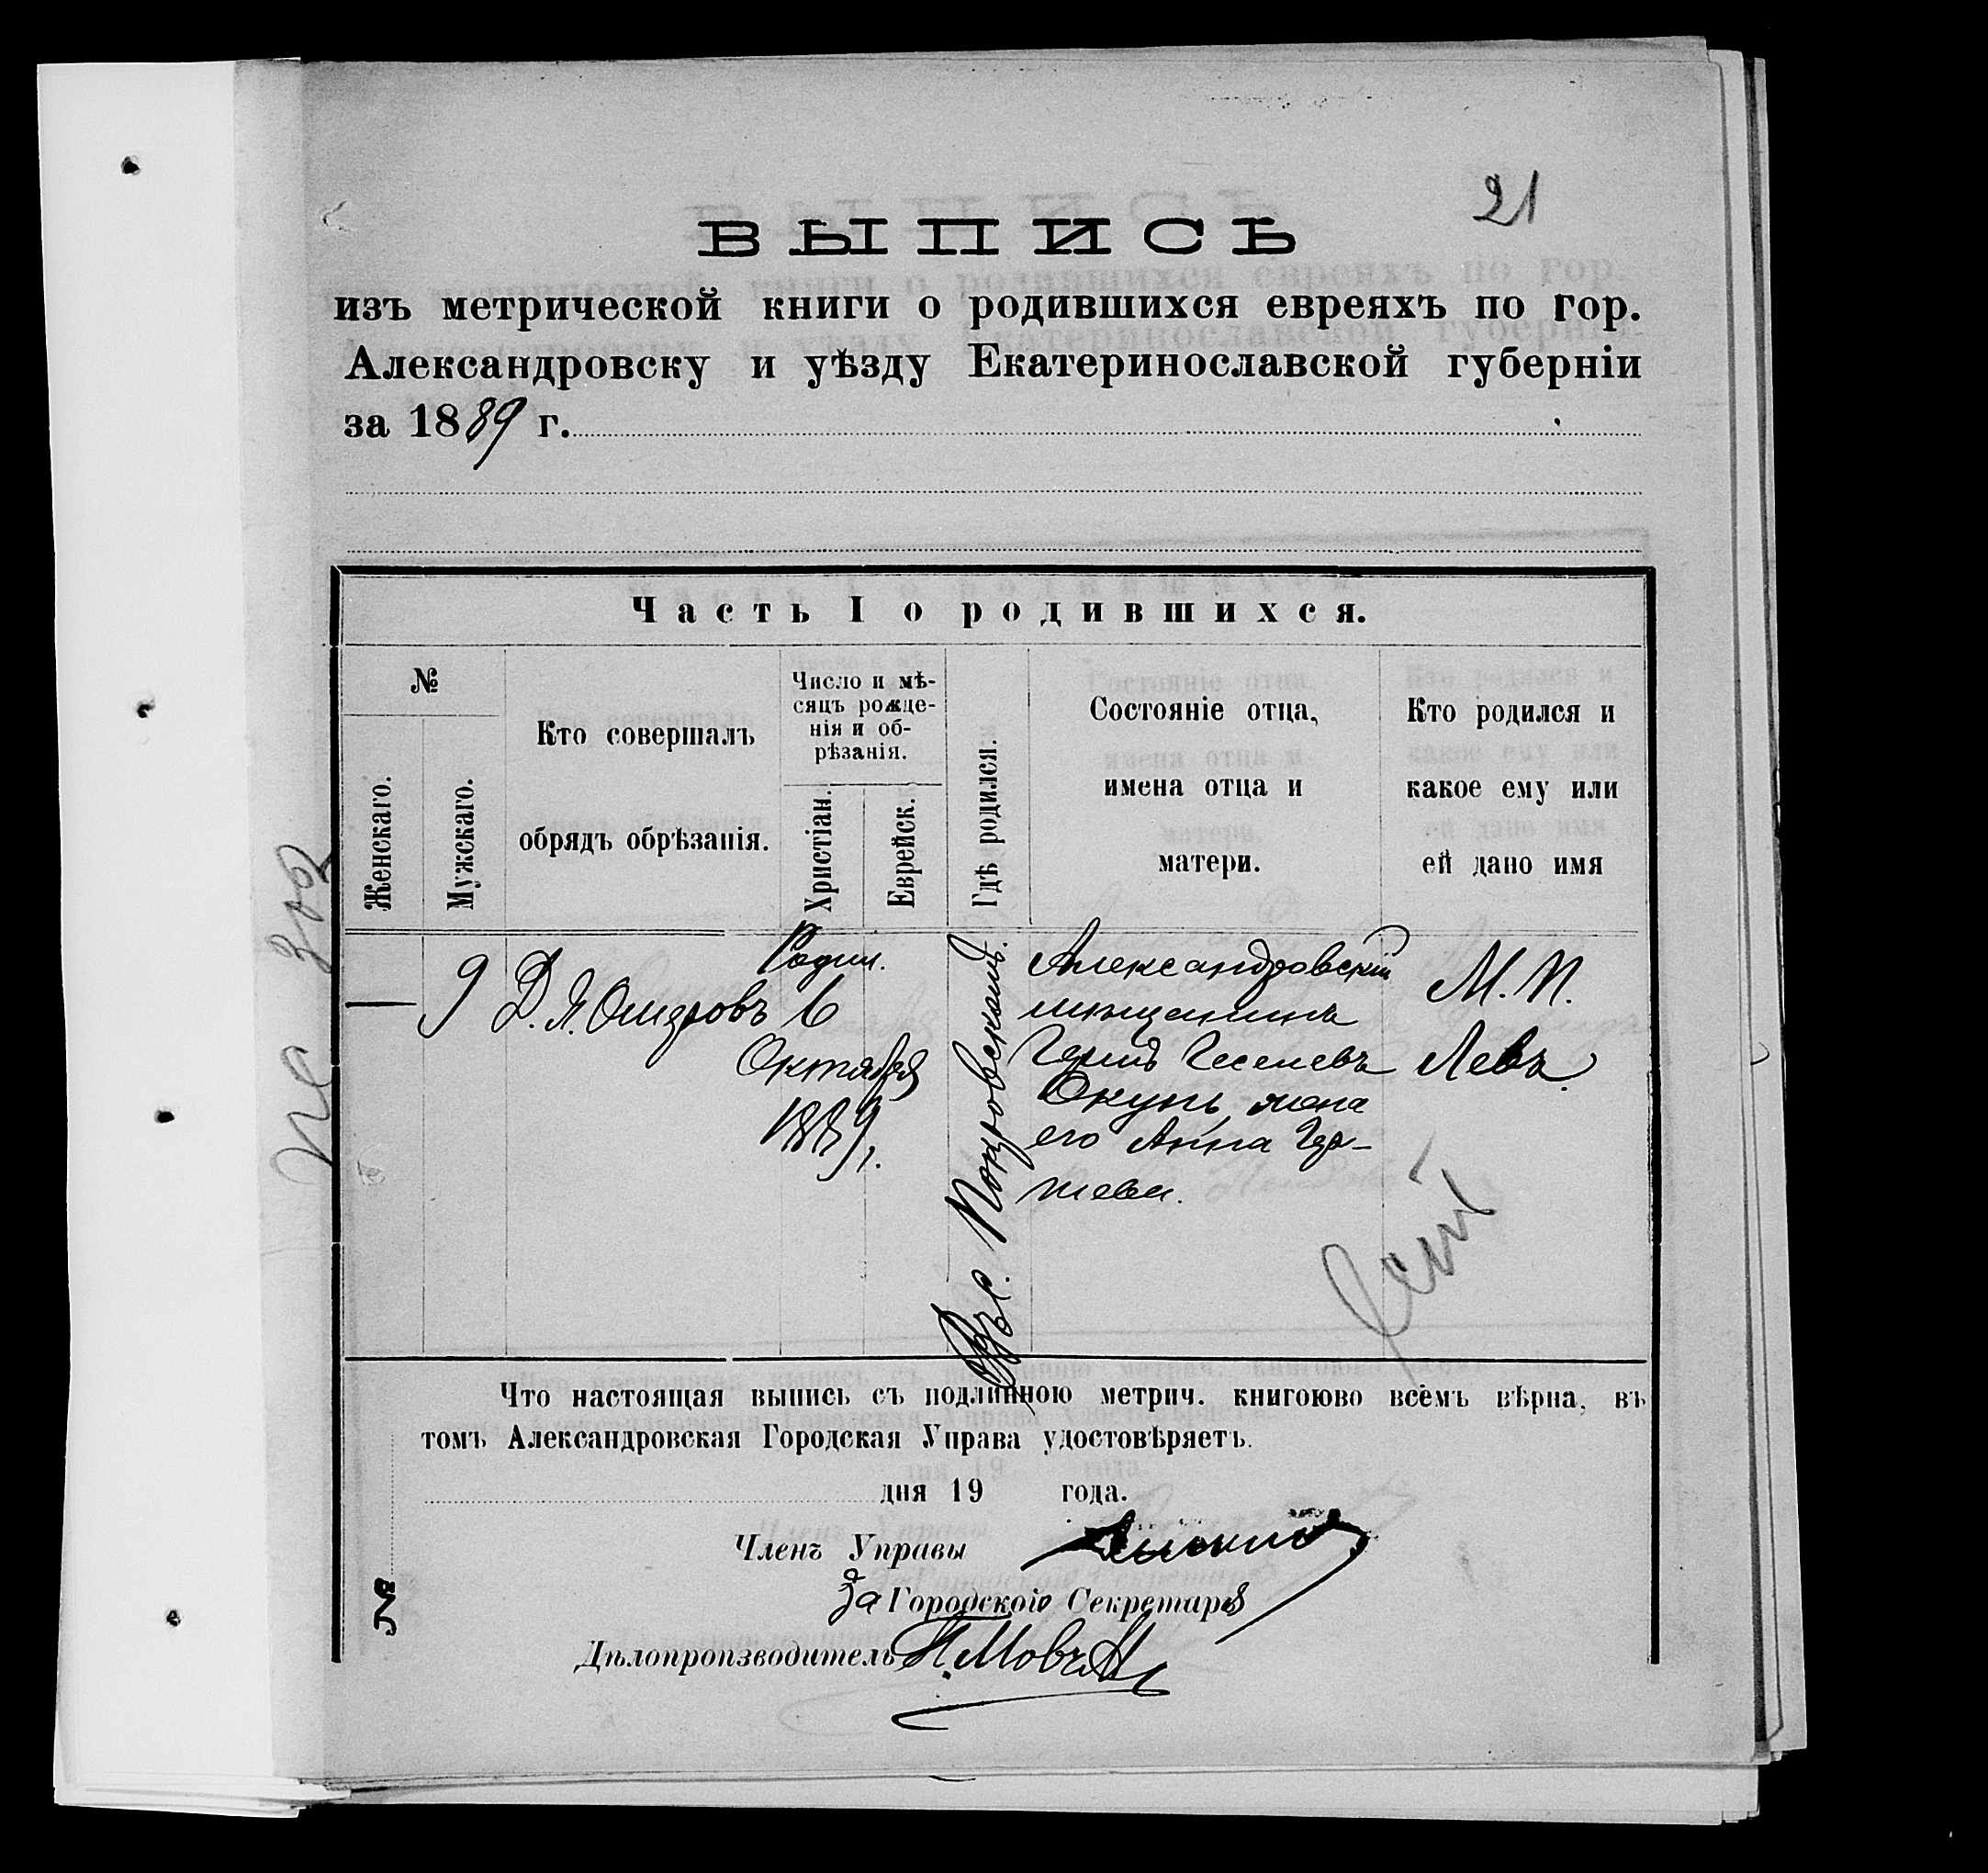 21
ВЫПИСЬ
изъ метрической книги о родившихся евреяхъ по гор.
Александровску и уѣзду Екатеринославской губерніи
за 1889 г.
Часть I о родившихся.
№
Женскаго.
Мужскаго.
Кто совершалъ
обрядъ обрѣзанія.
Число и мѣ-
сяцъ рожде-
нія и об-
рѣзанія.
Христіан.
Еврейск.
Гдѣ родился.
Состояніе отца,
имена отца и
матери.
Кто родился и
какое ему или
ей дано имя
—
9
Д. Я. Ошеровъ
Родил.
6
Октября
1889 г.
с. Покровскомъ.
Александровскій
мѣщанинъ
Гершъ Геселевъ
Окунь, жена
его Анна Гер-
шева.
М. П.
Левъ.
Что настоящая выпись съ подлинною метрич. книгоюво всемъ вѣрна, въ
томъ Александровская Городская Управа удостовѣряетъ.
дня 19 года.
Членъ Управы
За Городского Секретаря
Дѣлопроизводитель
№